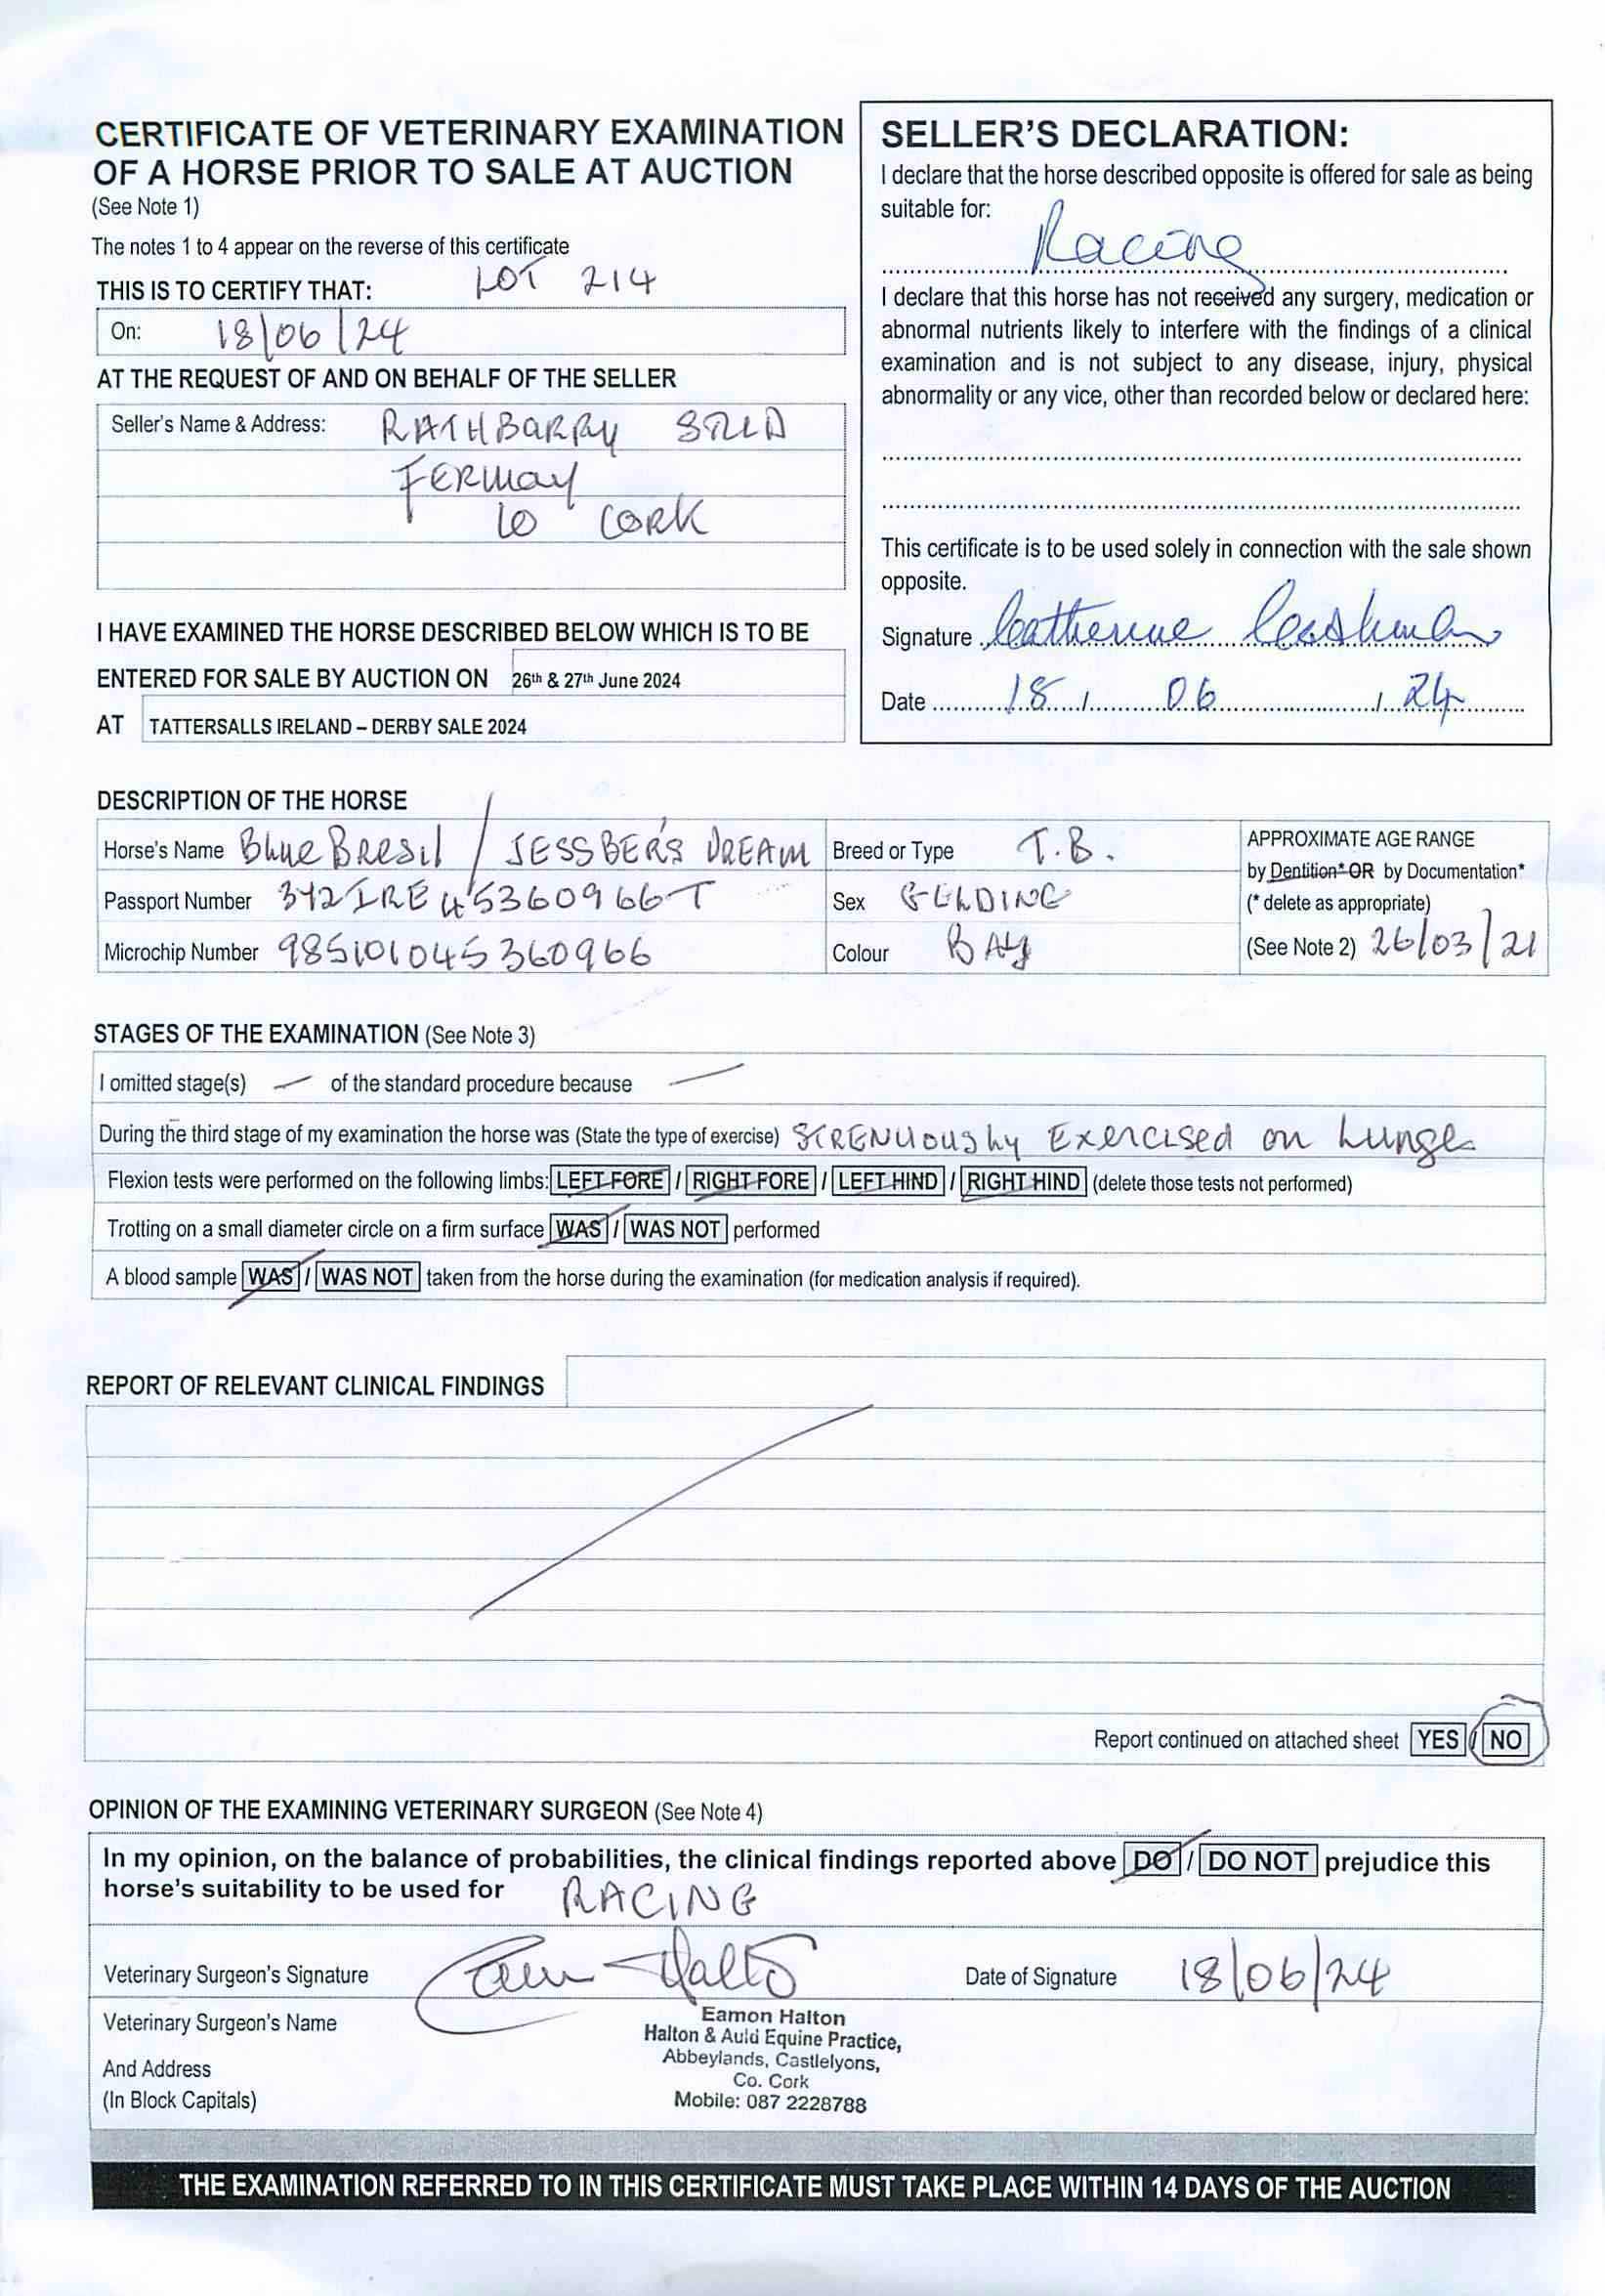 CERTIFICATE OF VETERINARY EXAMINATION
OF A HORSE PRIOR TO SALE AT AUCTION
(See Note 1)
The notes 1 to 4 appear on the reverse of this certificate
THIS IS TO CERTIFY THAT: LOT 214
On: 18/06/24
AT THE REQUEST OF AND ON BEHALF OF THE SELLER
Seller's Name & Address: RATHBARRY STUD
FERMOY
CO CORK
I HAVE EXAMINED THE HORSE DESCRIBED BELOW WHICH IS TO BE
ENTERED FOR SALE BY AUCTION ON 26th & 27th June 2024
AT TATTERSALLS IRELAND – DERBY SALE 2024
SELLER'S DECLARATION:
I declare that the horse described opposite is offered for sale as being
suitable for:
Racing
I declare that this horse has not received any surgery, medication or
abnormal nutrients likely to interfere with the findings of a clinical
examination and is not subject to any disease, injury, physical
abnormality or any vice, other than recorded below or declared here:
This certificate is to be used solely in connection with the sale shown
opposite.
Signature Catherine Cashman
Date 18 / 06 / 24
DESCRIPTION OF THE HORSE
Horse's Name Blue Bresil / JESSBER'S DREAM
Passport Number 372IRE45360966T
Microchip Number 985101045360966
Breed or Type T.B.
Sex GELDING
Colour BAY
APPROXIMATE AGE RANGE
by Dentition* OR by Documentation*
(* delete as appropriate)
(See Note 2) 26/03/21
STAGES OF THE EXAMINATION (See Note 3)
I omitted stage(s) — of the standard procedure because —
During the third stage of my examination the horse was (State the type of exercise) STRENUOUSLY Exercised on Lunge
Flexion tests were performed on the following limbs: LEFT FORE / RIGHT FORE / LEFT HIND / RIGHT HIND (delete those tests not performed)
Trotting on a small diameter circle on a firm surface WAS / WAS NOT performed
A blood sample WAS / WAS NOT taken from the horse during the examination (for medication analysis if required).
REPORT OF RELEVANT CLINICAL FINDINGS
Report continued on attached sheet YES / NO
OPINION OF THE EXAMINING VETERINARY SURGEON (See Note 4)
In my opinion, on the balance of probabilities, the clinical findings reported above DO / DO NOT prejudice this
horse's suitability to be used for RACING
Veterinary Surgeon's Signature Eamon Halton Date of Signature 18/06/24
Veterinary Surgeon's Name
And Address
(In Block Capitals)
Eamon Halton
Halton & Auld Equine Practice,
Abbeylands, Castlelyons,
Co. Cork
Mobile: 087 2228788
THE EXAMINATION REFERRED TO IN THIS CERTIFICATE MUST TAKE PLACE WITHIN 14 DAYS OF THE AUCTION